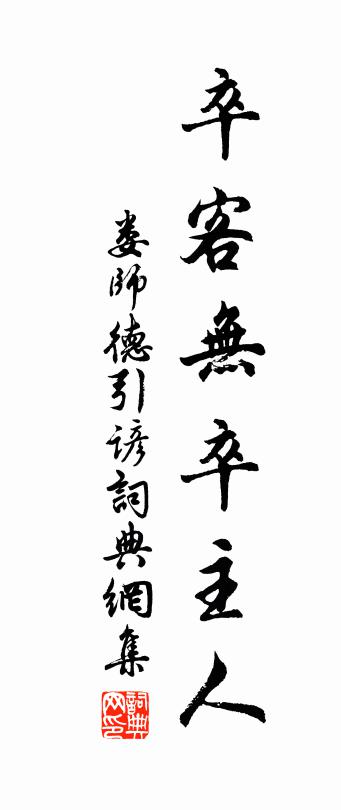 卒客無卒主人
婁師德引諺詞典網集
詞典
网印